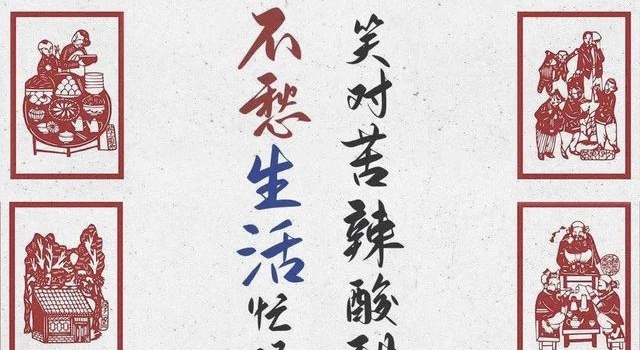 笑对苦辣酸
不愁生活忙